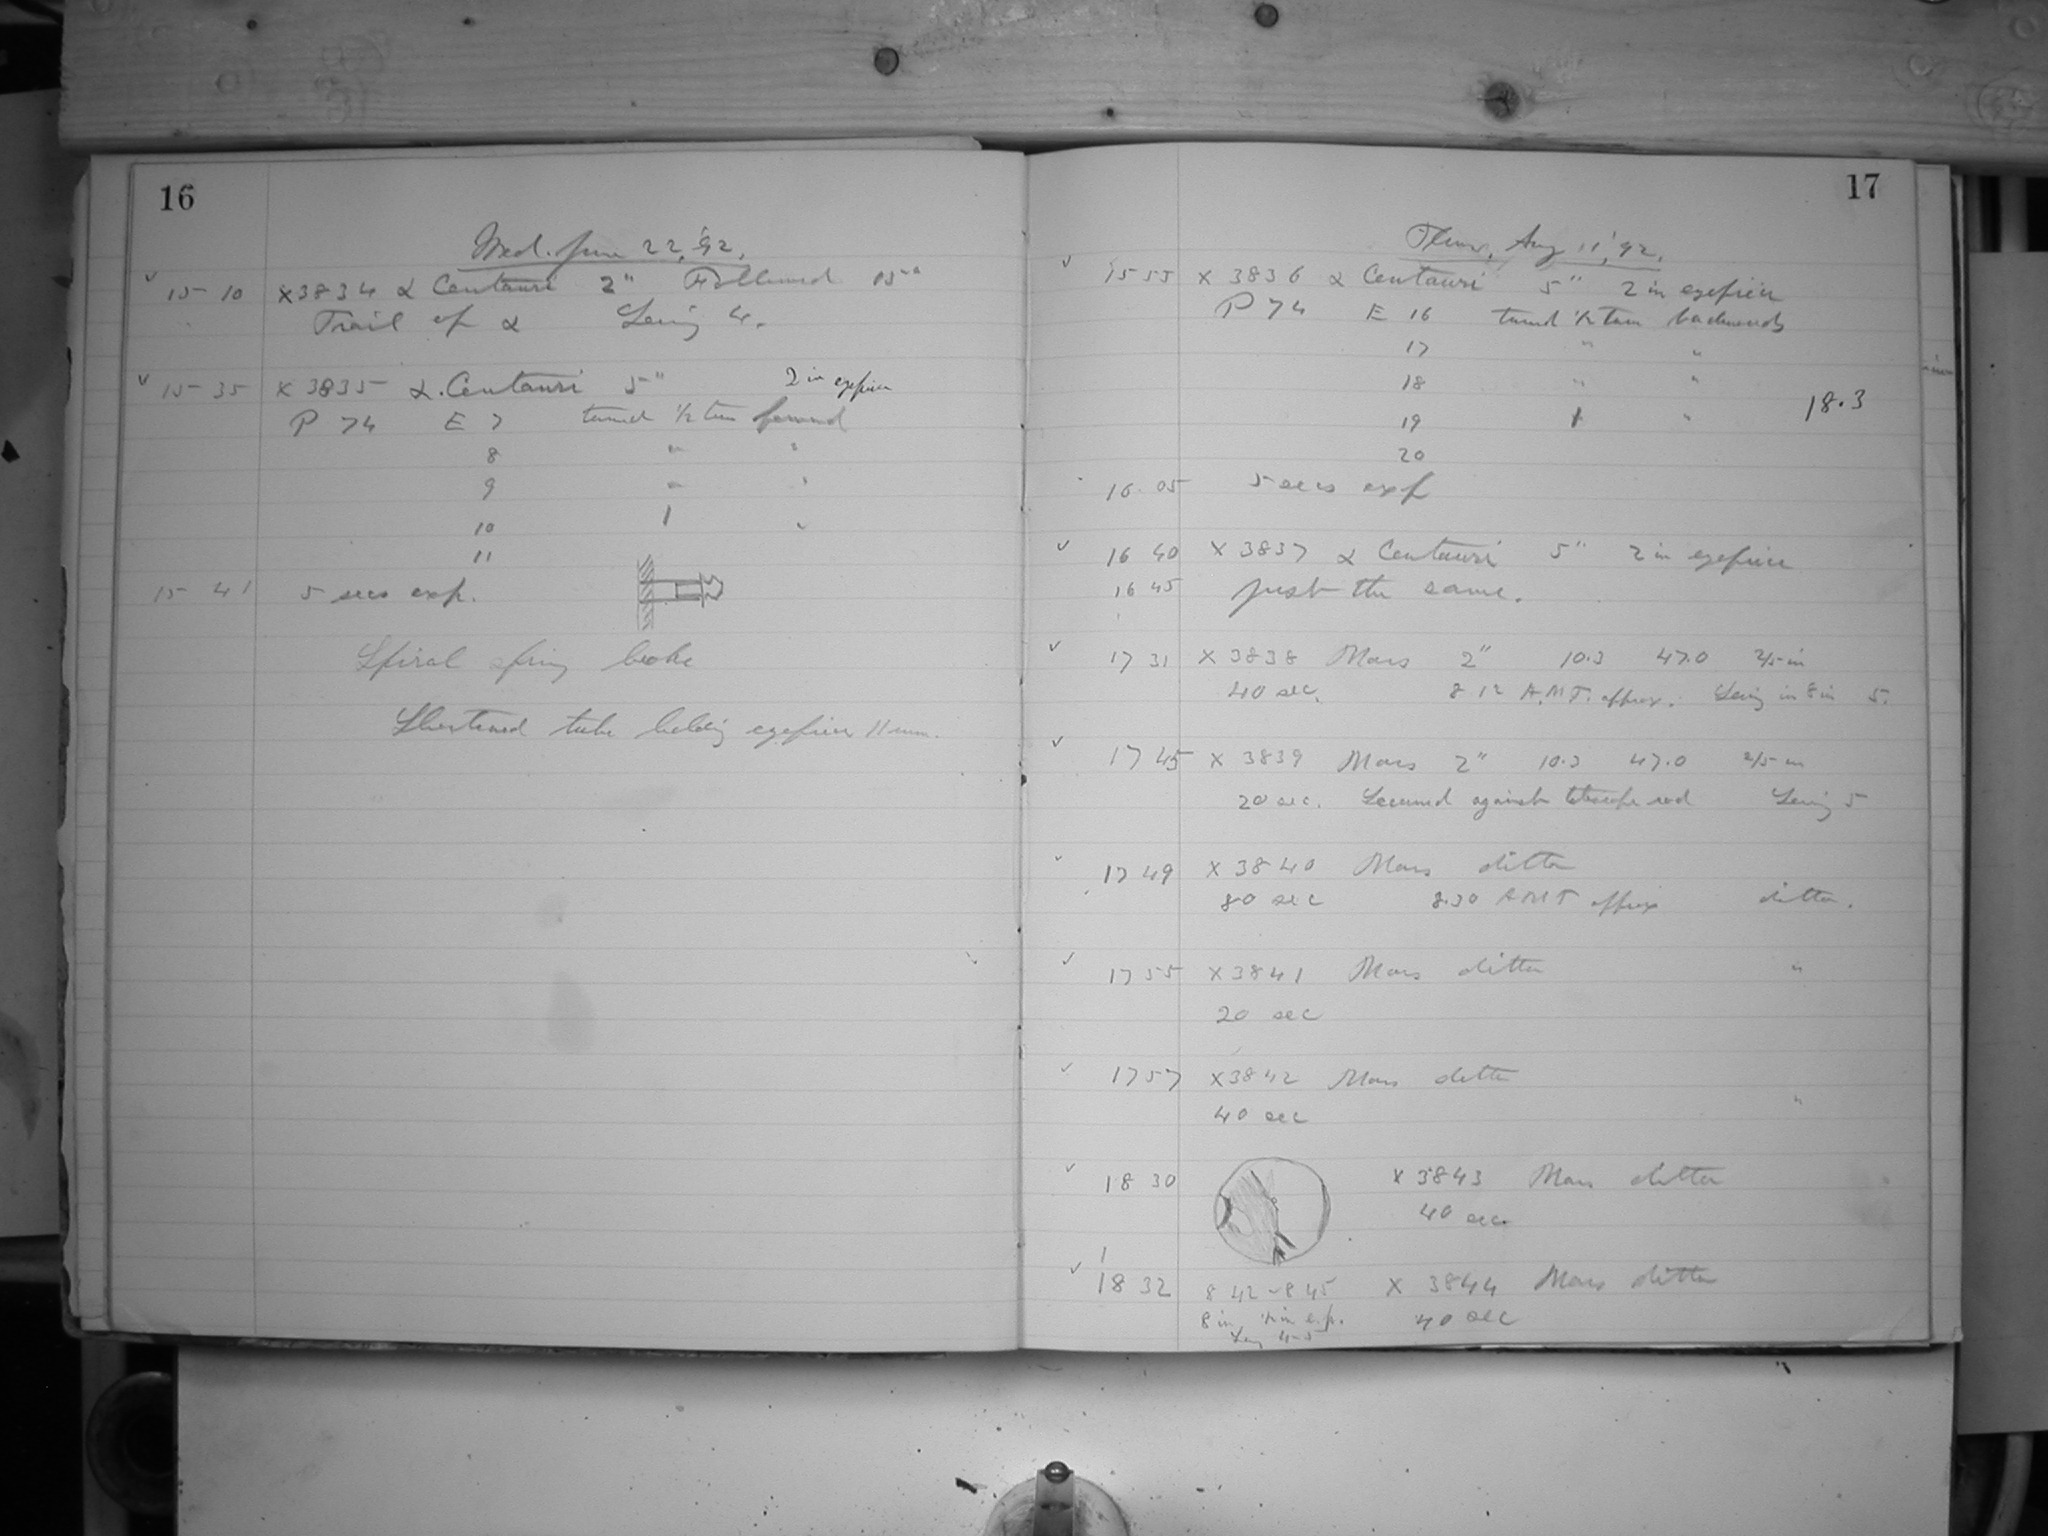 16
Wed. June 22, '92.
✓ 15 10 X3834 α Centauri 2" Followed 15"
Trail of α Seeing 4.
✓ 15 35 X 3835 α Centauri 5" 2 in eyepiece
P 74 E 7 turned ½ turn forward
8 " "
9 " "
10 "
11
15 41 5 secs exp.
Spiral spring broke
Shortened tube holding eyepiece 11 mm.
17
Thurs. Aug 11, '92.
✓ 15 55 X 3836 α Centauri 5" 2 in eyepiece
P 74 E 16 turned ½ turn backwards
17 " "
18 " "
18.3
19 "
20
16.05 5 secs exp
✓ 16 40 X 3837 α Centauri 5" 2 in eyepiece
16 45 just the same.
✓ 17 31 X 3838 Mars 2" 10.3 47.0 2/5 in
40 sec. 8 12 A.M.T. approx. Seeing in 8 in 5.
✓ 17 45 X 3839 Mars 2" 10.3 47.0 2/5 in
20 sec. against telescope rod Seeing 5
✓ 17 49 X 3840 Mars ditto
80 sec 8.30 AMT approx ditto.
✓ 17 55 X3841 Mars ditto "
20 sec
✓ 17 57 X3842 Mars ditto
40 sec "
✓ 18 30 X 3843 Mars ditto
40 sec.
✓ 18 32 8 42 - 8 45 X 3844 Mars ditto
8 in ½ in e.p. 40 sec
4-5